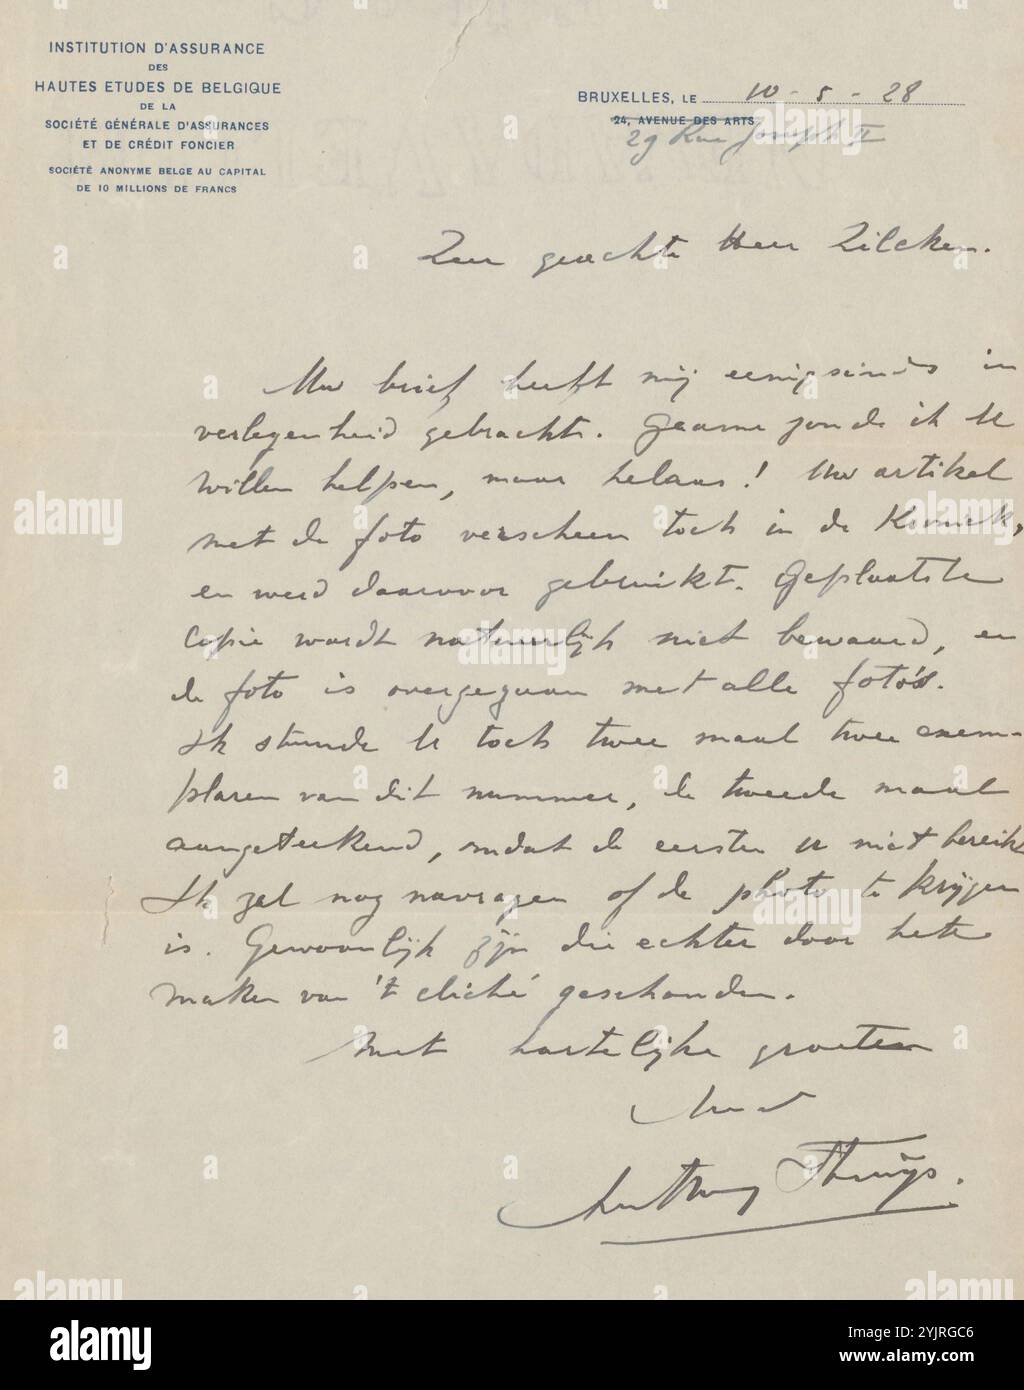 INSTITUTION D'ASSURANCE
DES
HAUTES ETUDES DE BELGIQUE
DE LA
SOCIÉTÉ GÉNÉRALE D'ASSURANCES
ET DE CRÉDIT FONCIER
SOCIÉTÉ ANONYME BELGE AU CAPITAL
DE 10 MILLIONS DE FRANCS
BRUXELLES, LE 10-5-28
24, AVENUE DES ARTS
29 Rue Joseph II
Zeer geachte Heer Zilcken.
Uw brief heeft mij eenigszinds in
verlegenheid gebracht. Gaarne zoude ik U
willen helpen, maar helaas! Uw artikel
met de foto verscheen toch in de Kroniek,
en werd daarvoor gebruikt. Geplaatste
Copie wordt natuurlijk niet bewaard, en
de foto is overgegaan met alle foto's.
Ik stuurde U toch twee maal twee exem-
plaren van dit nummer, de tweede maal
aangeteekend, omdat de eersten U niet bereik
Ik zal nog navragen of de photo te krijgen
is. Gewoonlijk zijn die echter door het
maken van 't cliché geschonden.
Met hartelijke groeten
Anthony Thuijs.
alamy
Image ID: 2YJRGC6
www.alamy.com